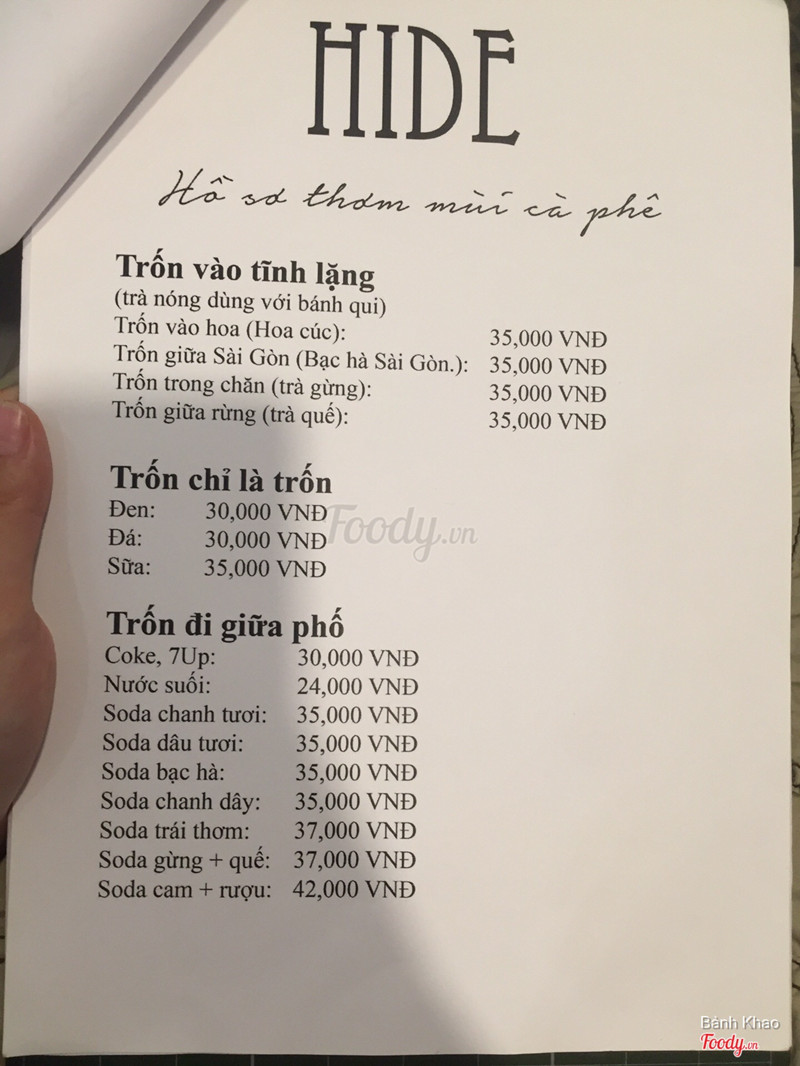 HIDE
Hồ sơ thơm mùi cà phê
Trốn vào tĩnh lặng
(trà nóng dùng với bánh qui)
Trốn vào hoa (Hoa cúc): 35,000 VNĐ
Trốn giữa Sài Gòn (Bạc hà Sài Gòn.): 35,000 VNĐ
Trốn trong chăn (trà gừng): 35,000 VNĐ
Trốn giữa rừng (trà quế): 35,000 VNĐ
Trốn chỉ là trốn
Đen: 30,000 VNĐ
Đá: 30,000 VNĐ
Sữa: 35,000 VNĐ
Foody.vn
Trốn đi giữa phố
Coke, 7Up: 30,000 VNĐ
Nước suối: 24,000 VNĐ
Soda chanh tươi: 35,000 VNĐ
Soda dâu tươi: 35,000 VNĐ
Soda bạc hà: 35,000 VNĐ
Soda chanh dây: 35,000 VNĐ
Soda trái thơm: 37,000 VNĐ
Soda gừng + quế: 37,000 VNĐ
Soda cam + rượu: 42,000 VNĐ
Bánh Khao
Foody.vn